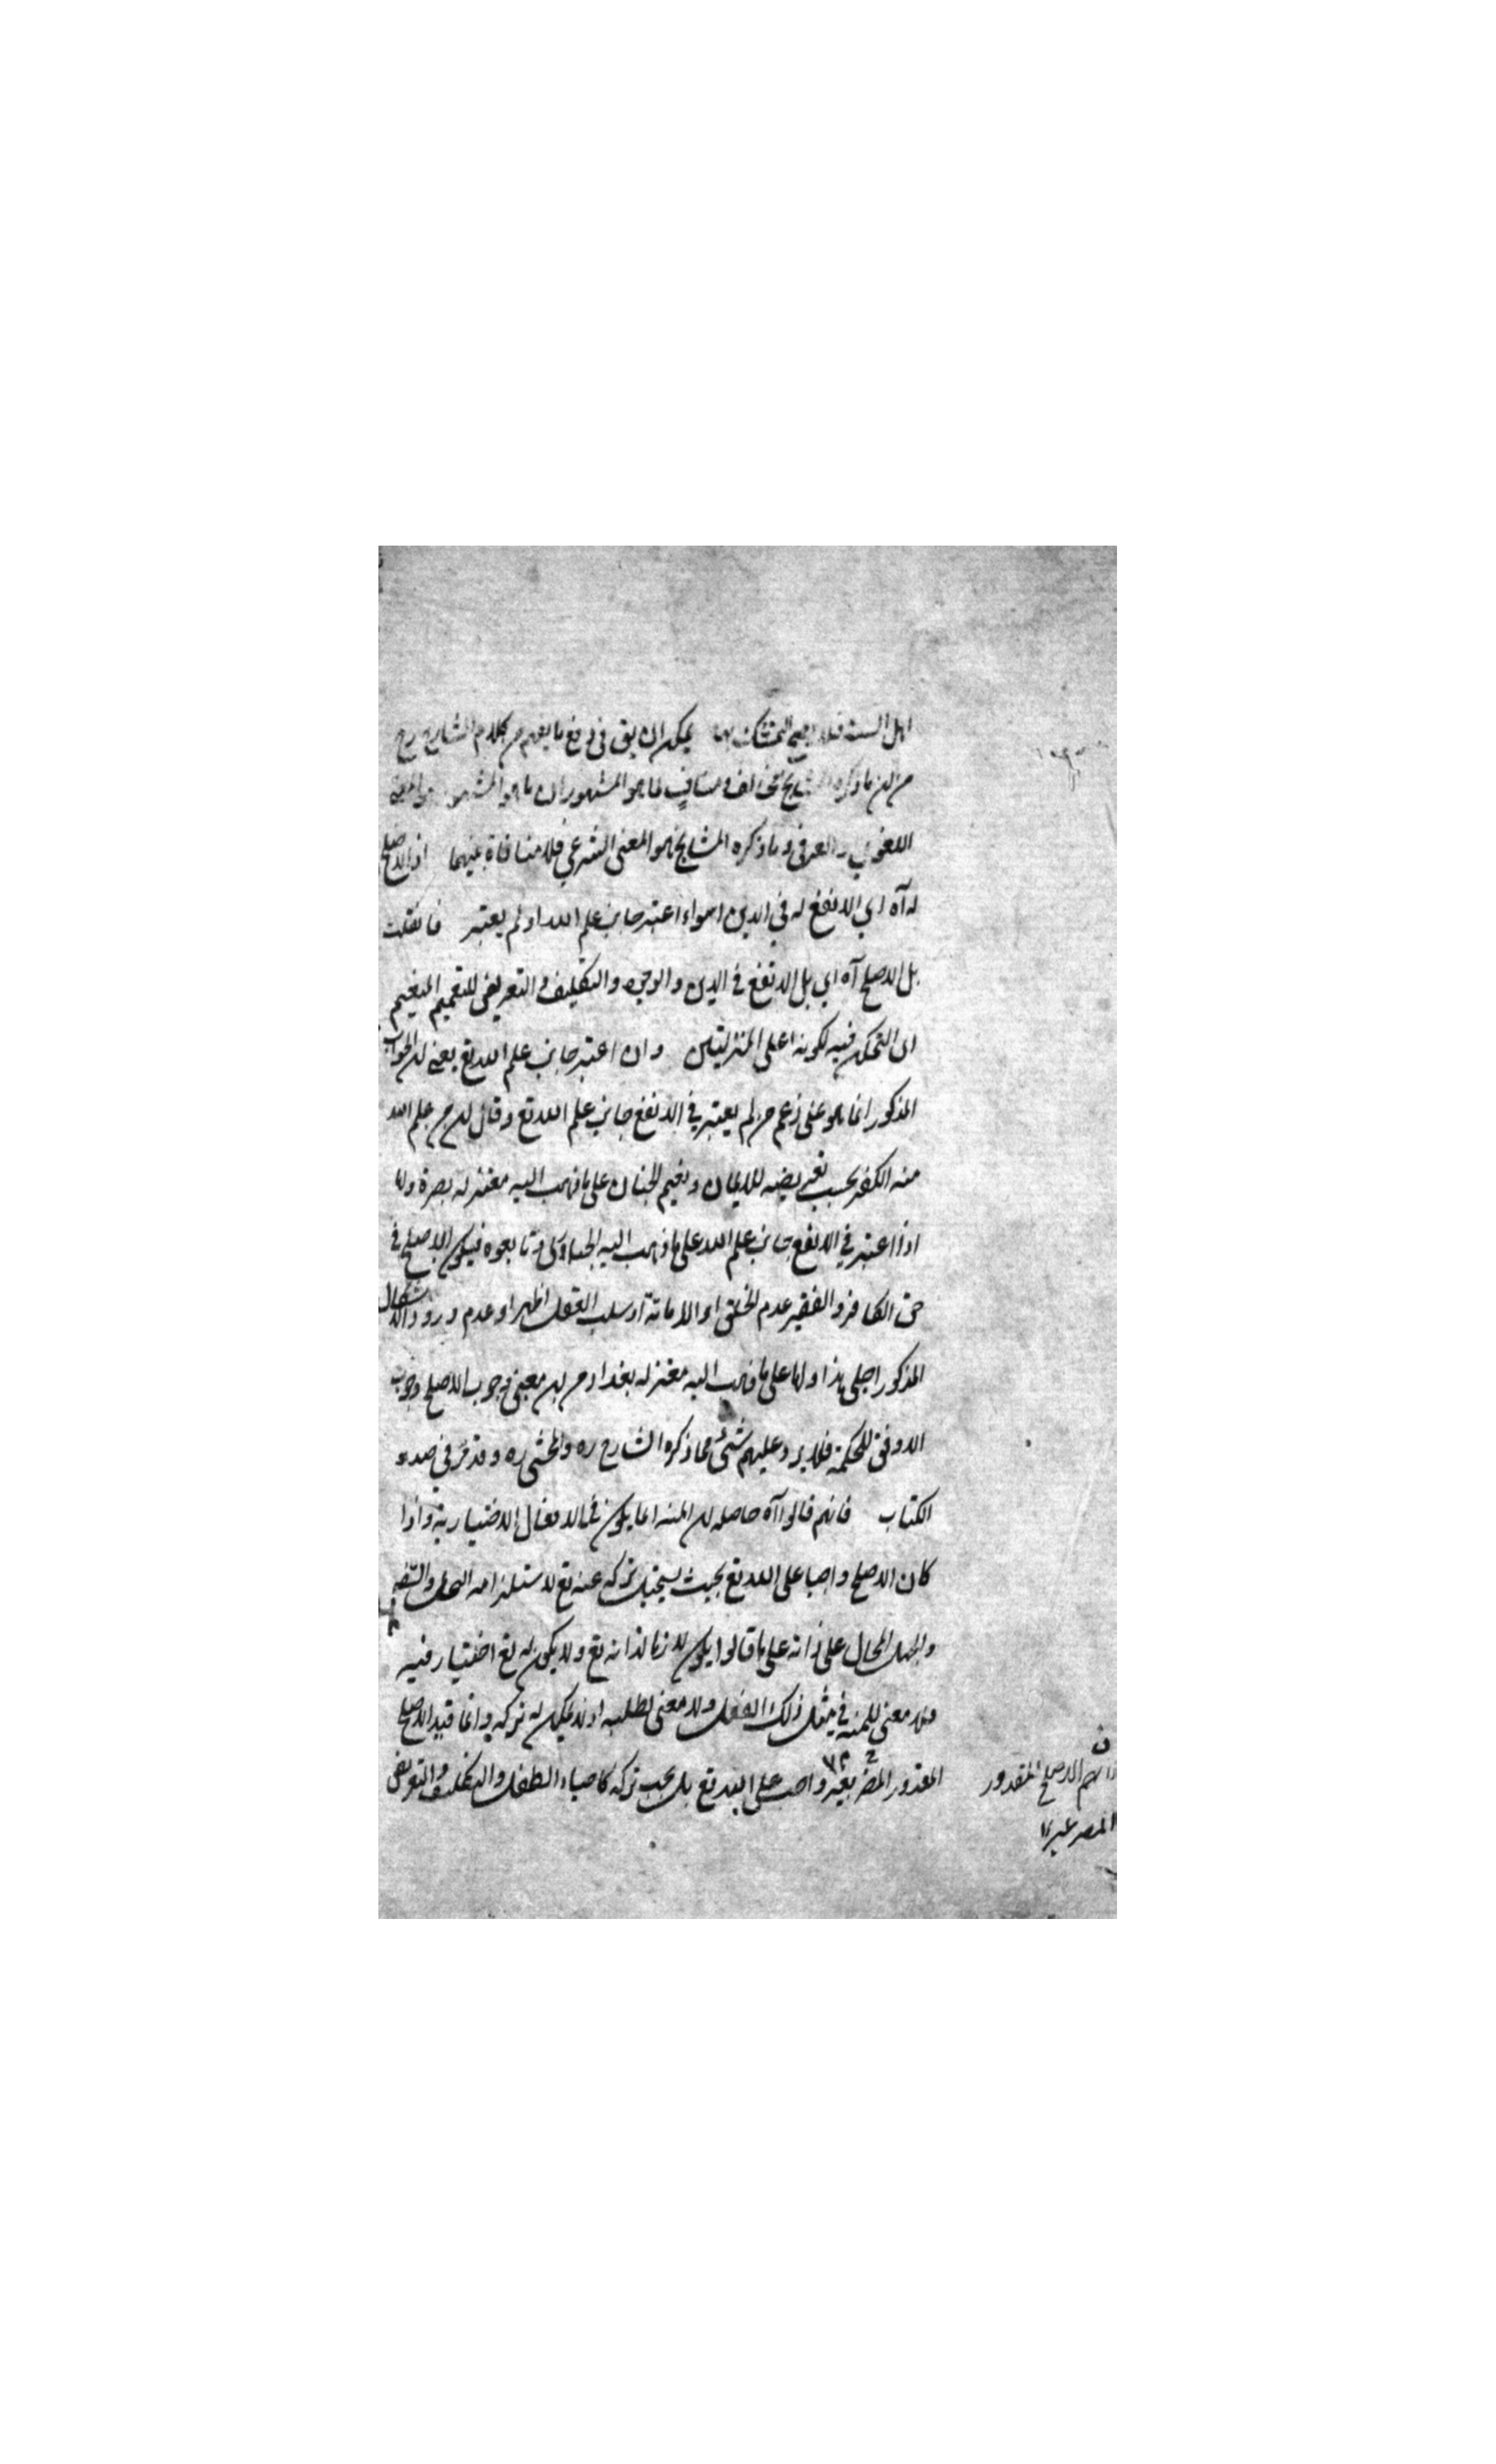 اهل السنة فلا يصح التمسك بها يمكن ان يق في دفع ما يفهم من كلام الشارح رح
من ان ما ذكره المشايخ مخالف ومناف لما هو المشهور ان ما هو المشهور هو المعنى
اللغوي والعرفي وما ذكره المشايخ هو المعنى الشرعي فلا منافاة بينهما اذ الاصلح
له آه اي الانفع له في الدين سواء اعتبر جانب علم الله او لم يعتبر فان قلت
بل الاصلح آه اي بل الانفع في الدين والوجود والتكليف والتعريض للنعيم المقيم
ان التمكن فيه لكونه اعلى المنزلتين وان اعتبر جانب علم الله تع يعني ان الجواب
المذكور انما هو على زعم من لم يعتبر في الانفع جانب علم الله تع وقال ان من علم الله
منه الكفر يجب تعريضه للايمان ونعيم الجنان على ما ذهب اليه معتزلة بصرة واما
اذا اعتبر في الانفع جانب علم الله على ما ذهب اليه الجبائي وتابعوه فيكون الاصلح في
حق الكافر الفقير عدم الخلق او الاماتة او سلب العقل اظهر او عدم ورود الاشكال
المذكور اجلى هذا واما على ما ذهب اليه معتزلة بغداد من ان معنى وجوب الاصلح وجوب
الاوفق للحكمة فلا يرد عليهم شيئ مما ذكره الشارح ره والمحشي ره وقد مر في صدر
الكتاب فانهم قالوا آه حاصله ان المنة انما يكون في الافعال الاختيارية واذا
كان الاصلح واجبا على الله تع بحيث يستحيل تركه عنه تع لاستلزامه البخل والسفه
والجهل المحال على ذاته على ما قالوا يكون لازما لذاته تع ولا يكون له تع اختيار فيه
ولا معنى للمنة في مثل ذلك الفعل ولا معنى لطلبه اذ لا يمكن له تركه وانما قيد الاصلح
المقدور المضر بغيره واجب على الله تع بل يجب تركه كاحياء الطفل والتكليف والتعريض
الاصلح المقدور
المضر غيرا